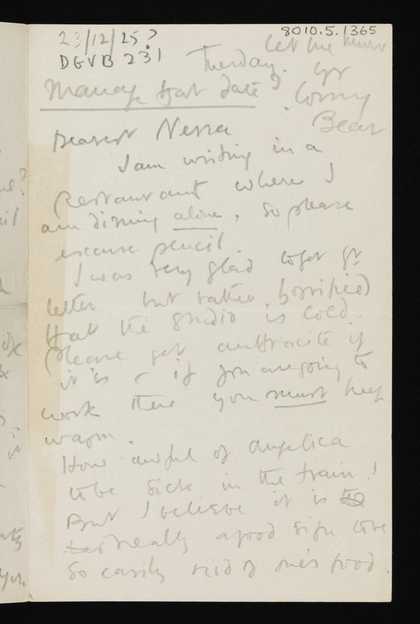 23/12/25?
8010.5.1365
DGVB 23!
let me know
Tuesday. yr
manage that date?
loving
Bear
Dearest Nessa
I am writing in a
Restaurant where I
am dining alone, so please
excuse pencil.
I was very glad to get yr
letter but rather horrified
that the studio is cold.
(Please get anthracite if
it is – if you are going to
work there you must keep
warm.
How awful of Angelica
to be sick in the train!
But I believe it is to
really a good sign to be
so easily rid of one's food.